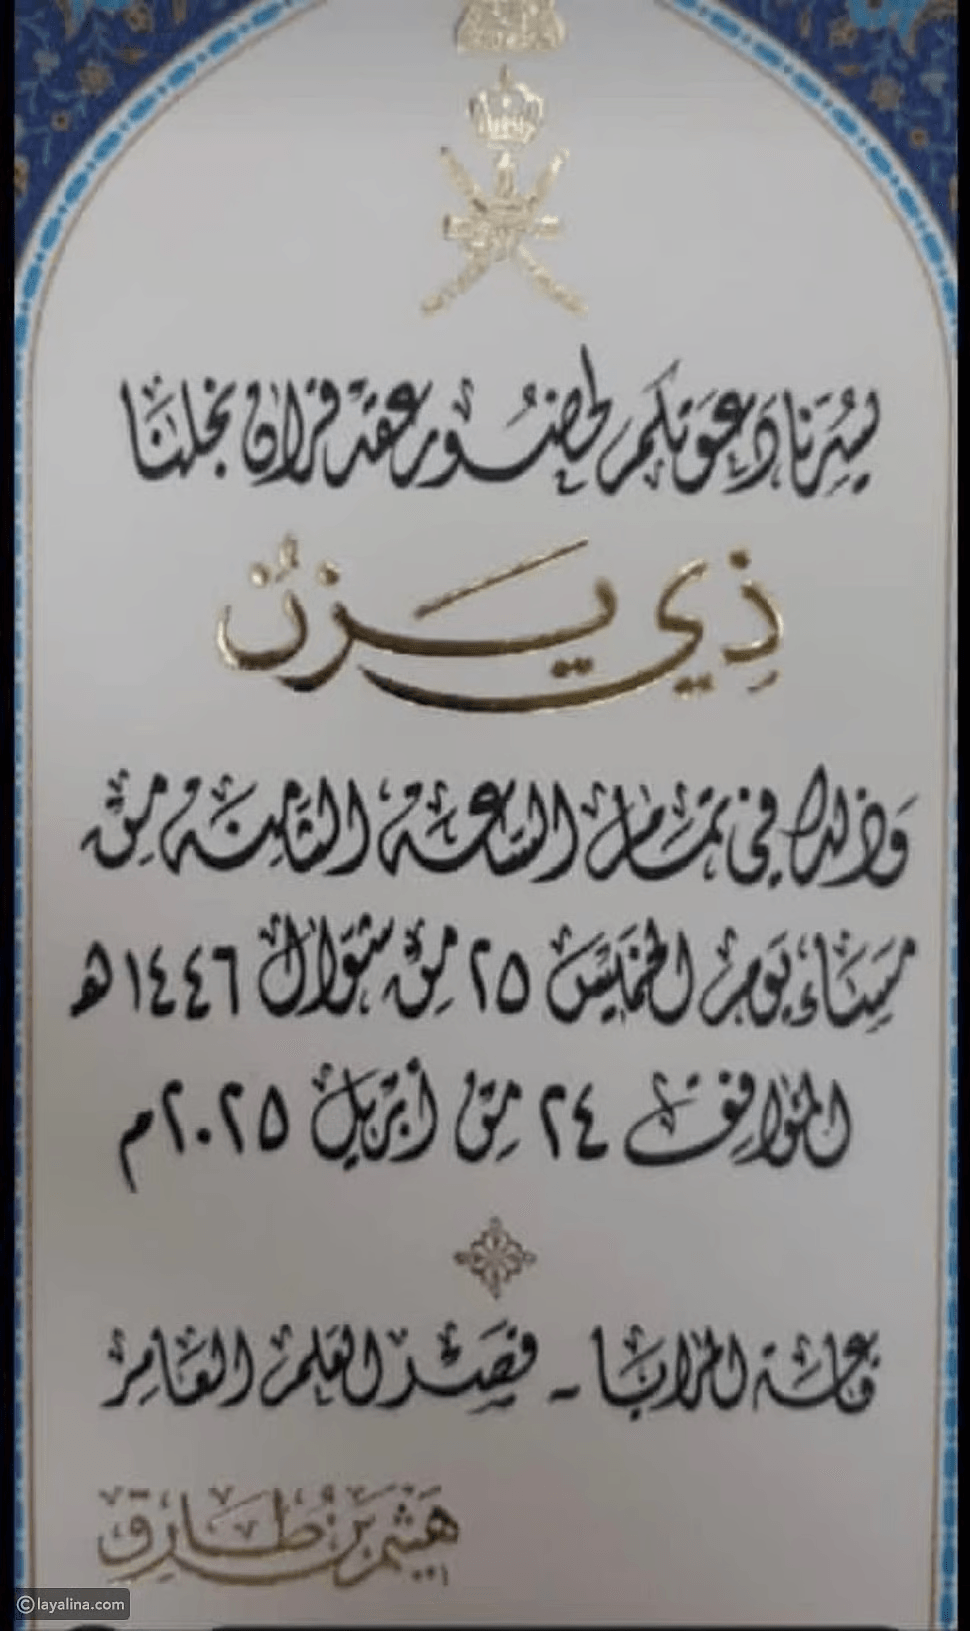 يَسُرّنا دَعوَتكم لحضُور عقد قران نجلنَا
ذِي يَزنْ
وَذلك في تمَام السَاعَة الثَامِنَة مِن
مَسَاء يَوم الخميَس ٢٥ مِن شوَال ١٤٤٦ هـ
الموَافِق ٢٤ مِن أبريل ٢٠٢٥م
قاعَة المرايَا - قصَر العَلم العَامِر
هَيثم بن طَارِق
©layalina.com